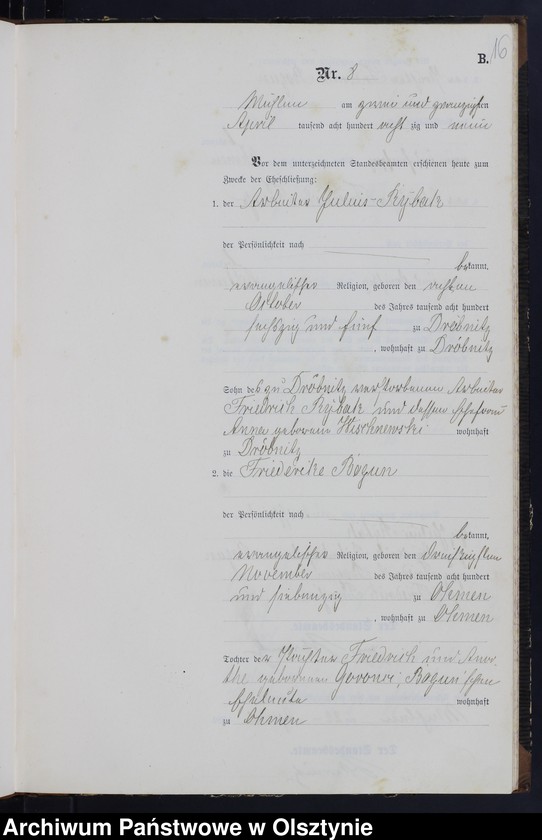 16
B.
Nr. 8
Mühlen am zwei und zwanzigsten
April tausend acht hundert acht zig und neun
Vor dem unterzeichneten Standesbeamten erschienen heute zum
Zwecke der Eheschließung:
1. der Arbeiter Julius Rybak
der Persönlichkeit nach
bekannt,
evangelischer Religion, geboren den achten
October des Jahres tausend acht hundert
sechszig und fünf zu Dröbnitz
, wohnhaft zu Dröbnitz
Sohn des zu Dröbnitz verstorbenen Arbeiter
Friedrich Rybak und dessen Ehefrau
Anna geborene Wischnewski wohnhaft
zu Dröbnitz
2. die Friederike Bogun
der Persönlichkeit nach
bekannt,
evangelischer Religion, geboren den dreißigsten
November des Jahres tausend acht hundert
und siebenzig zu Ohmen
, wohnhaft zu Ohmen
Tochter der Friedrich und Doro-
the geborenen Bogun'schen
Eheleute wohnhaft
zu Ohmen
Archiwum Państwowe w Olsztynie